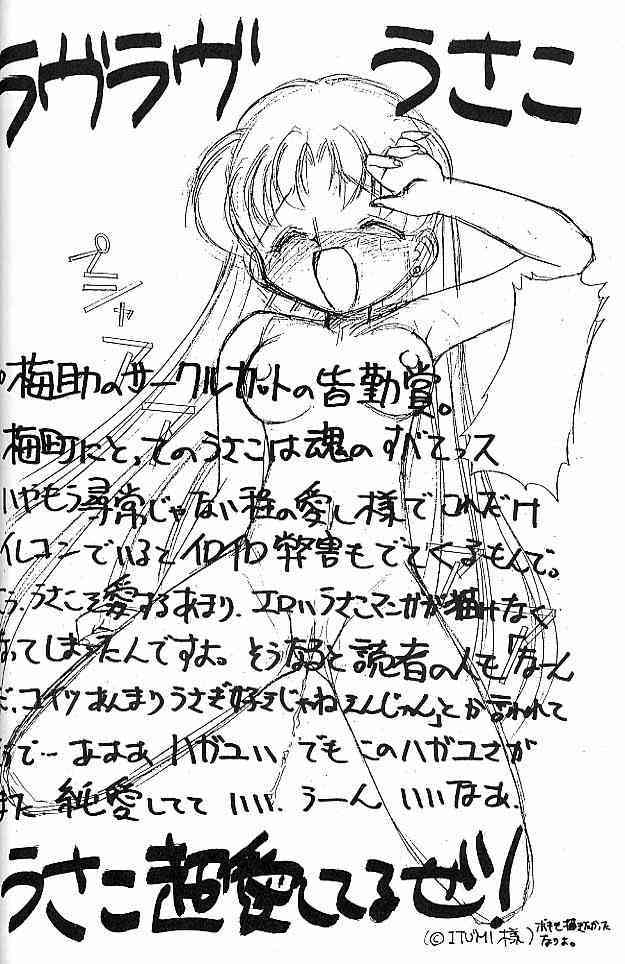 ラヴラヴ うさこ
梅助のサークルカットの皆勤賞。
梅町にとってのうさこは魂のすべてっス
いやもう尋常じゃない程の愛し様でこれだけ
イレコンでいるとイロイロ弊害もでてくるもんで。
うさこを愛するあまり、エロいうさこマンガが描けなく
なってしまったんですよ。そうなると読者の人も「なーん
だ、コイツあんまりうさぎ好きじゃねえんじゃん」とか言われて
そうで…ああああ ハガユい でもこのハガユさが
また 純愛してて いい、うーん いいなあ、
うさこ超愛してるぜ!
(©ITUMI様)
ボキも描きたかった
なりよ。